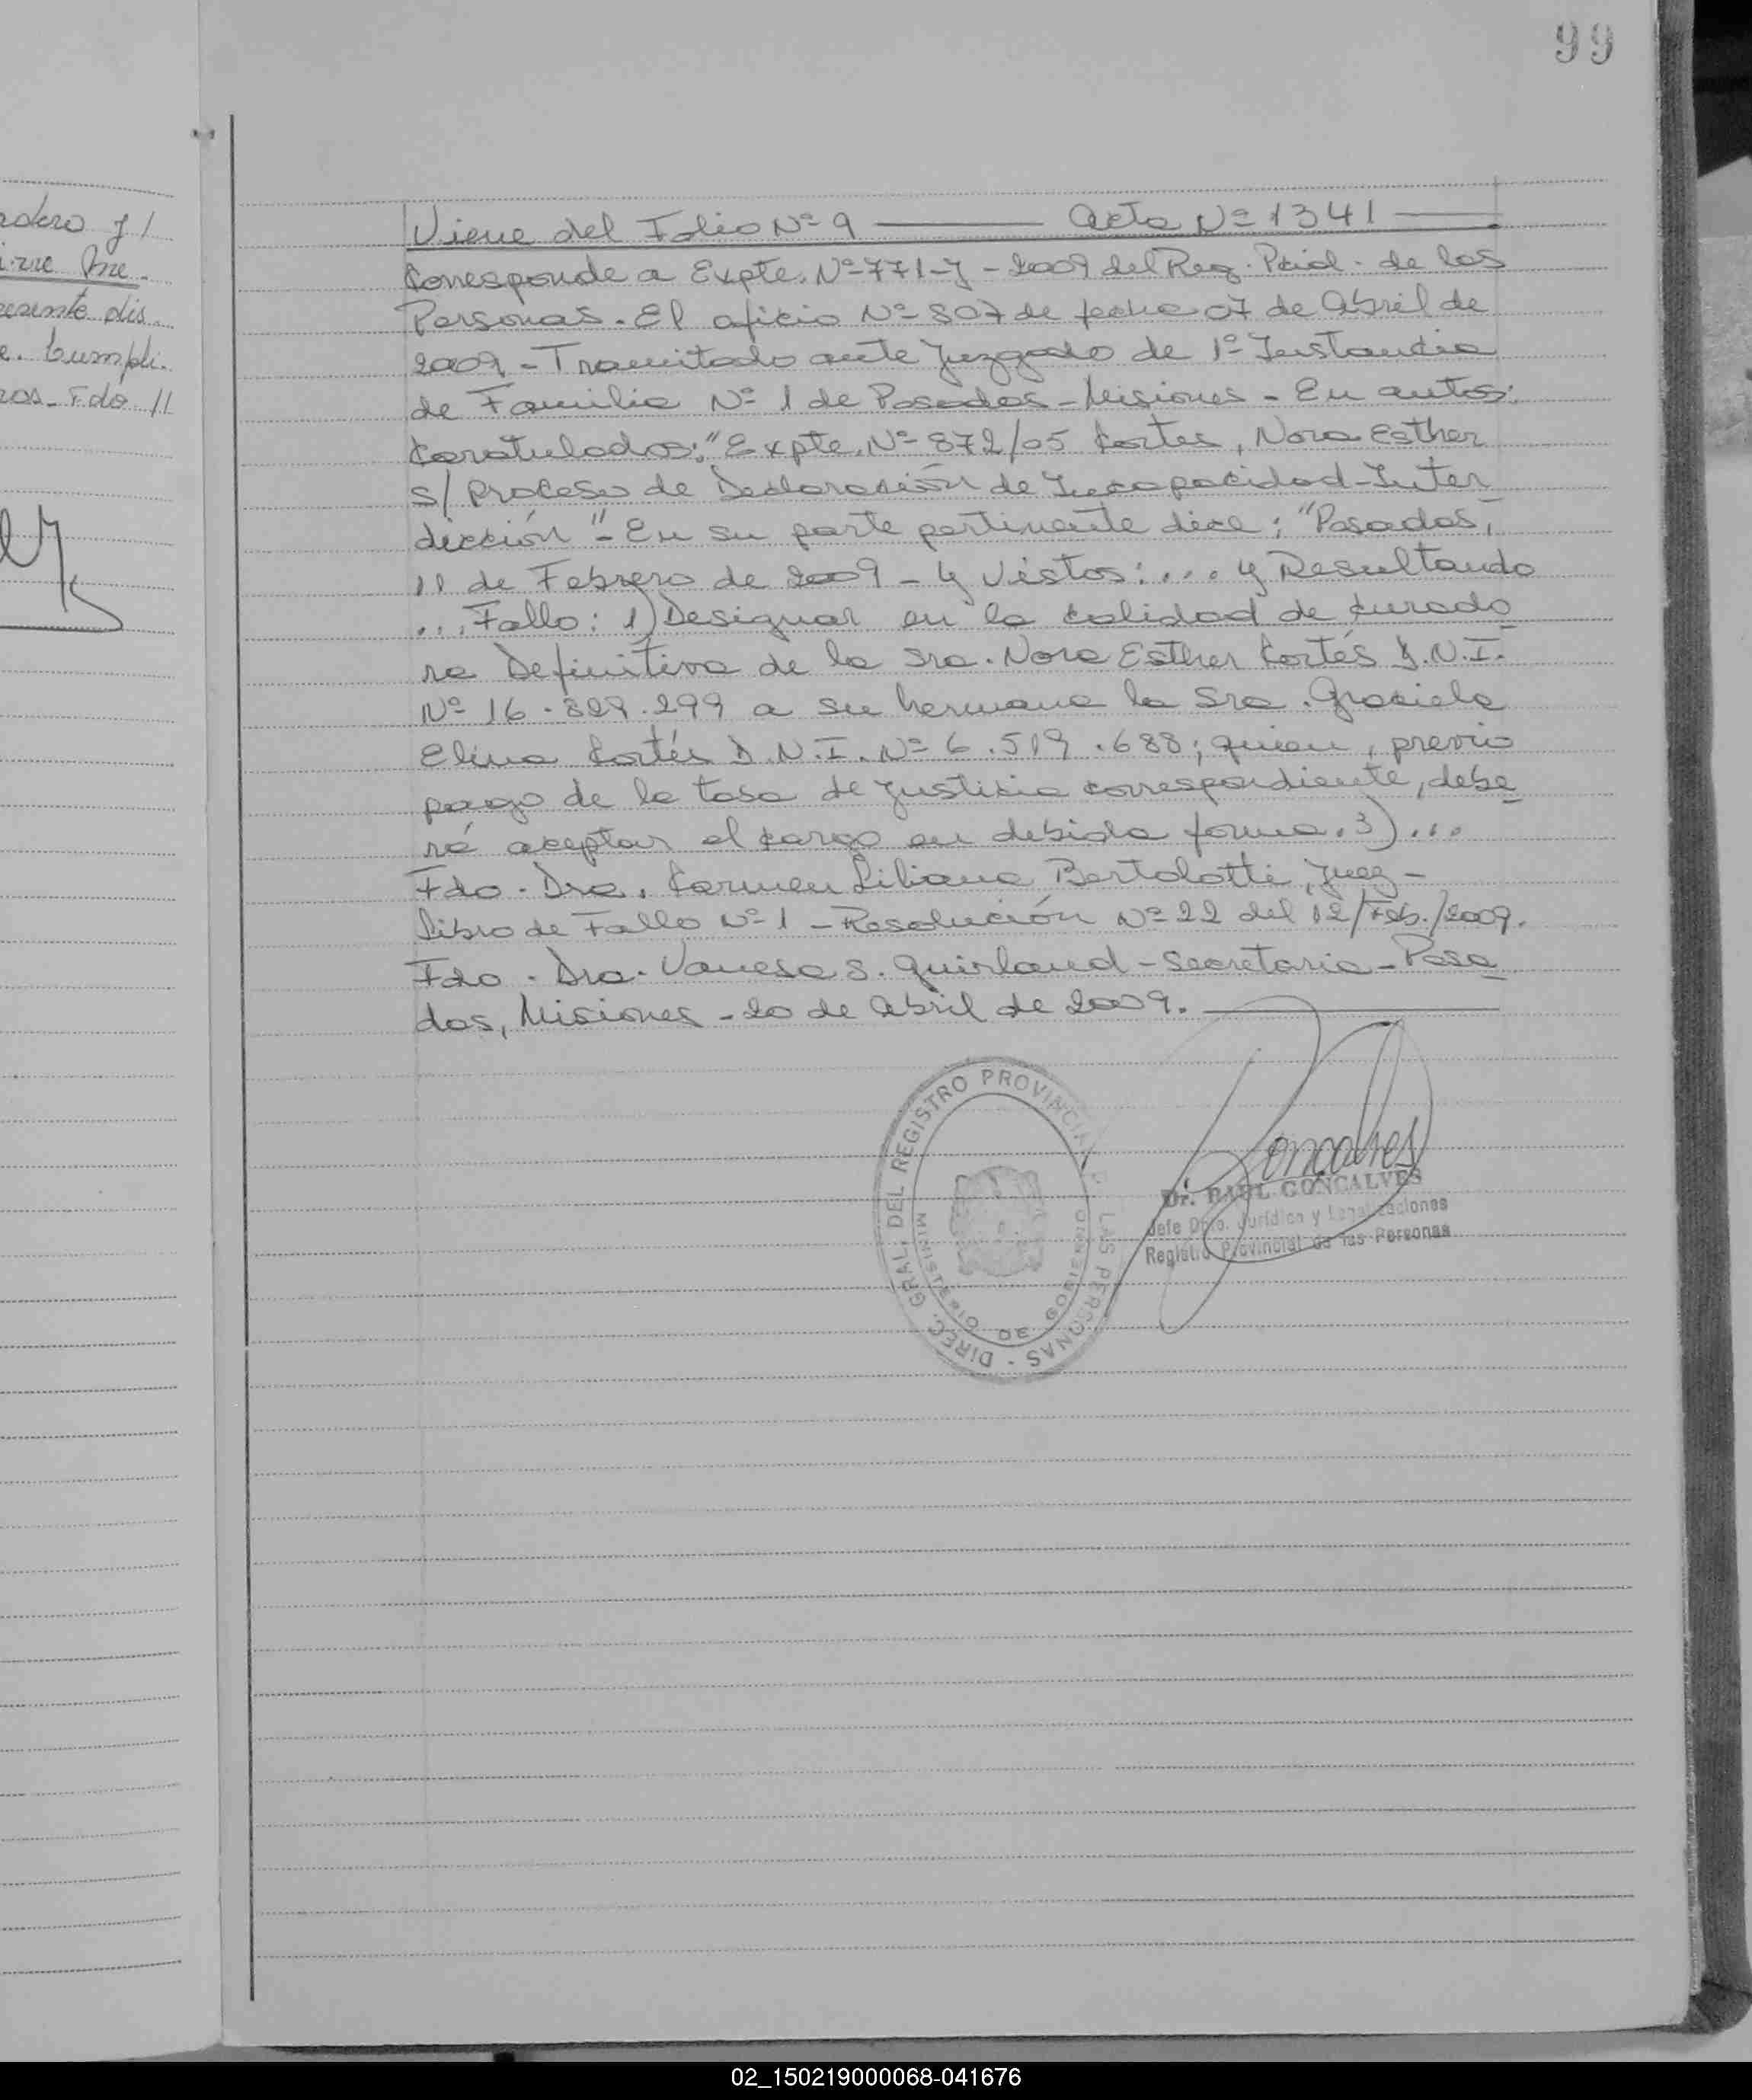 99
adero y/
irre Pne.
esente dis.
e. Cumpli.
ros. Fdo //
Viene del Folio Nº 9 ——— Acta Nº 1341 ———
Corresponde a Expte. Nº 771-J-2009 del Reg. Pcial. de las
Personas. El oficio Nº 807 de fecha 07 de Abril de
2009 - Tramitado ante Juzgado de 1º Instancia
de Familia Nº 1 de Posadas - Misiones - En autos:
Caratulados: "Expte. Nº 872/05 Cortes, Nora Esther
s/ Proceso de Declaración de Incapacidad-Inter
dicción" - En su parte pertinente dice: "Posadas,
11 de Febrero de 2009 - y Vistos: ... y Resultando
... Fallo: 1) Designar en la calidad de curado
ra Definitiva de la Sra. Nora Esther Cortés D.N.I.
Nº 16.829.299 a su hermana la Sra. Graciela
Elina Cortés D.N.I. Nº 6.519.688; quien, previo
pago de la tasa de justicia correspondiente, debe
rá aceptar el cargo en debida forma. 3) ...
Fdo. Dra. Carmen Liliana Bertolotti, Juez -
Libro de Fallo Nº 1 - Resolución Nº 22 del 12/Feb./2009.
Fdo. Dra. Vanesa S. Guirland - Secretaria - Posa
das, Misiones - 20 de Abril de 2009.
DIREC. GRAL. DEL REGISTRO PROVINCIAL LAS PERSONAS
MINISTERIO DE GOBIERNO
Goncalves
Dr. RAUL GONCALVES
Jefe Dpto. Jurídico y Legalizaciones
Registro Provincial de las Personas
02_150219000068-041676